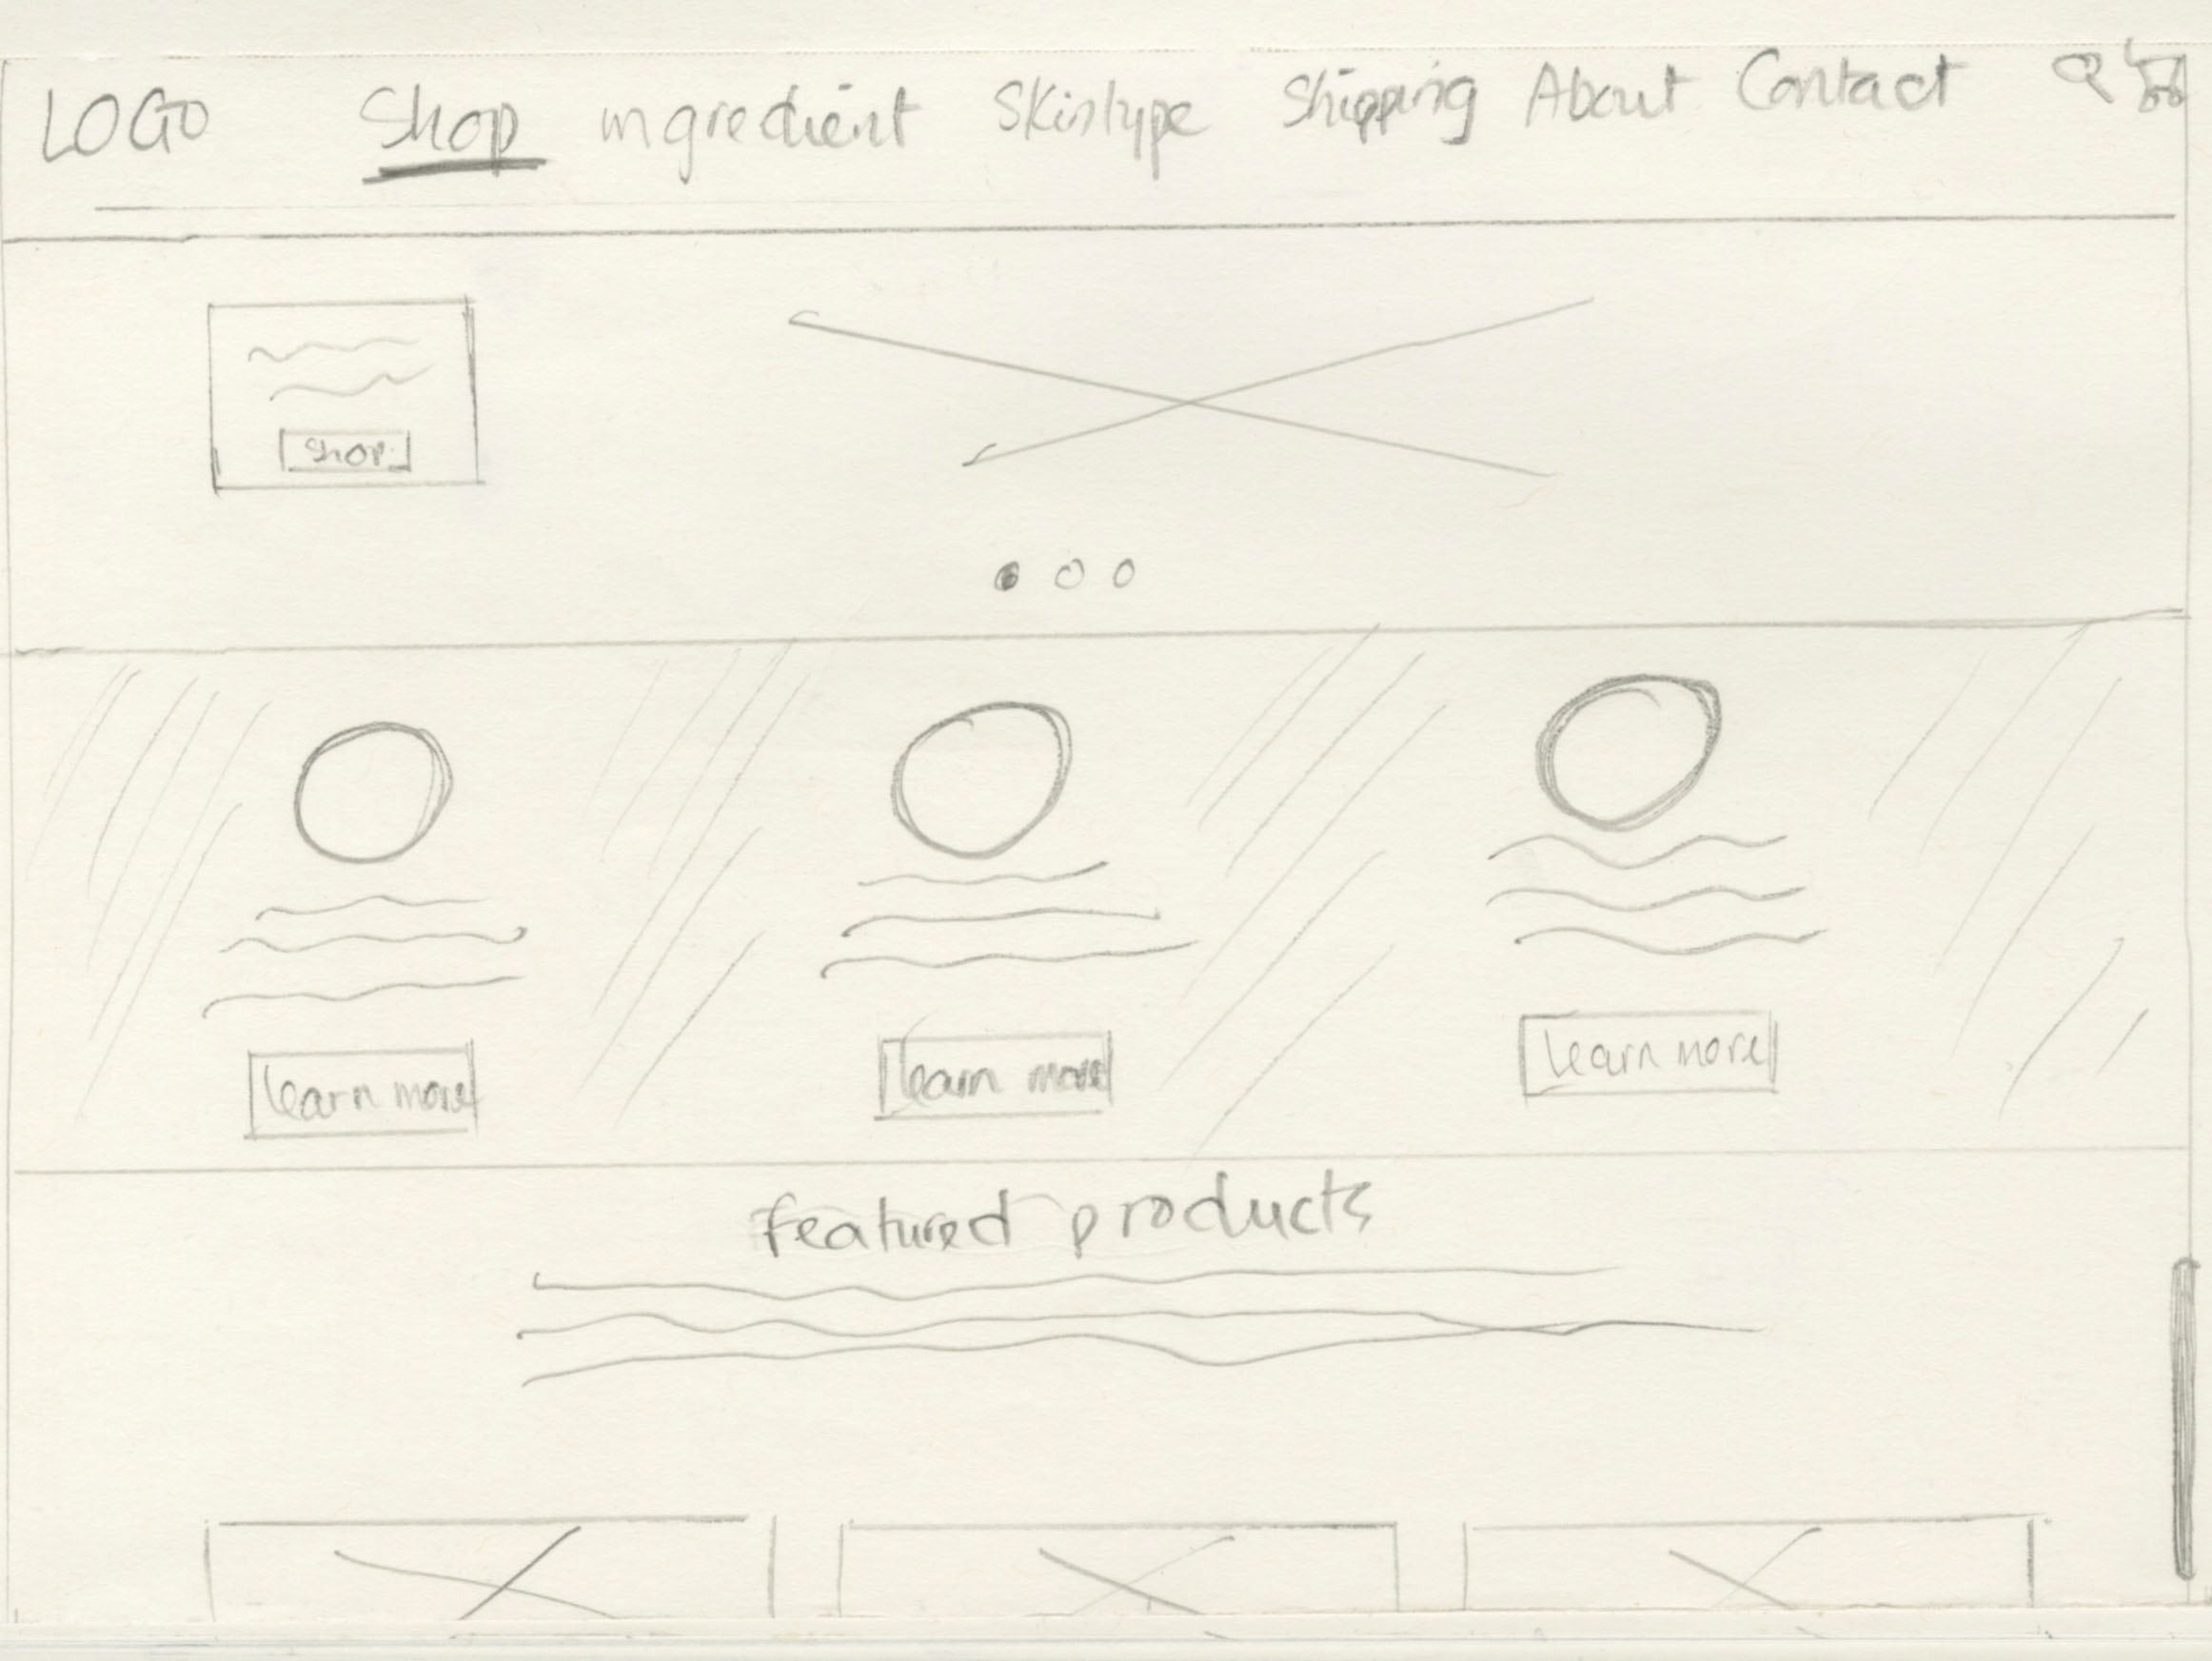 LOGO Shop ingredient Skintype Shipping About Contact
Shop
learn more learn more learn more
featured products